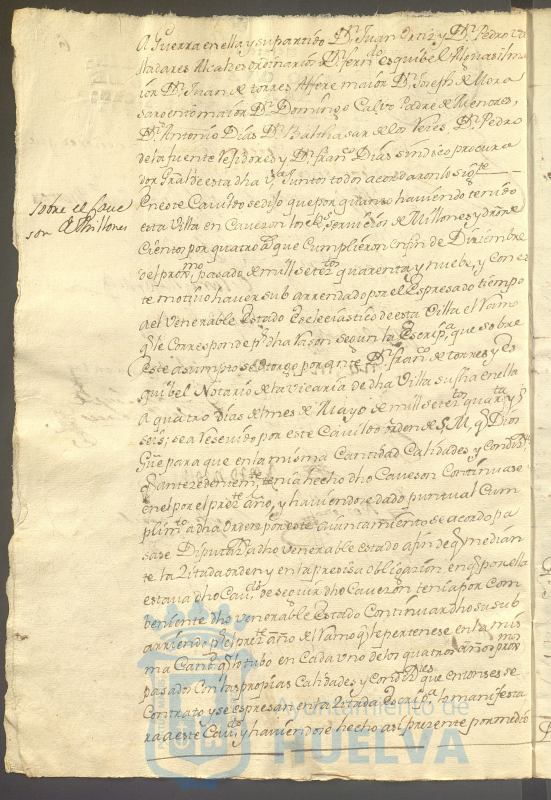 A Guerra en ella y su partido Dn Juan Ortiz y Dn Pedro Va
lladares Alcaldes ordinarios Dn ferndo esquibel Alguasil ma
ior Dn Juan de torres Alferes maior Dn Joseph de Mora
sargento maior Dn Domingo Calvo Padre de Menores,
Dn Antonio Dias Dn Balthasar de los Reies Dn Pedro
de la fuente Rejidores y Dn franco Dias sindico procura
dor Gral de esta dha Va Juntos todos acordaron lo sigte
sobre el Cave
son de Millones
En este Cavildo se dijo que por quanto haviendo tenido
esta Villa en Caveson los Rs servicios de Millones y dros de
Cientos por quatro as que Cumplieron en fin de Diziembre
del proxmo pasado de mill setetos quarenta y nuebe, y con es
te motivo haver sub arrendado por el Espresado tiempo
a el Venerable Estado Ecclesiastico de esta Villa el Ramo
qe le Corresponde por dha Rason segun la Escripa que sobre
Este asumpto se otorgo por ante Dn franco de torres y Es
quibel Notario de la vicaria de dha Villa su fha en ella
A quatro dias del mes de Mayo de mill setetos quarta y
seis; se a Resevido por este Cavildo orden de S M, qe Dios
Gue para que en la misma Cantidad Calidades y condizes
qe antezedentemte tenia hecho dho Caveson Continuase
en el por el preste año, y haviendose dado puntual Cum
plimto a dha Orden por este Aiuntamiento se acordo pa
sase Diputazn a dho venerable estado a fin de qe median
te la Zitada orden y en la presisa obligazion en qe por ella
estava dho Cavdo de seguir dho Caveson tenia por com
beniente dho venerable Estado Continuar dho su sub
arriendo pr el preste año del Ramo qe le pertenese en la mis
ma Cantd qe lo tubo en Cada uno de los quatro años proxmos
pasados Con las propias Calidades y condizes que entonses se
Contrato y se espresan en la Zitada Escripa lo manifesta
ra a este Cavdo y haviendose hecho asi presente por medio
Ayuntamiento de
HUELVA